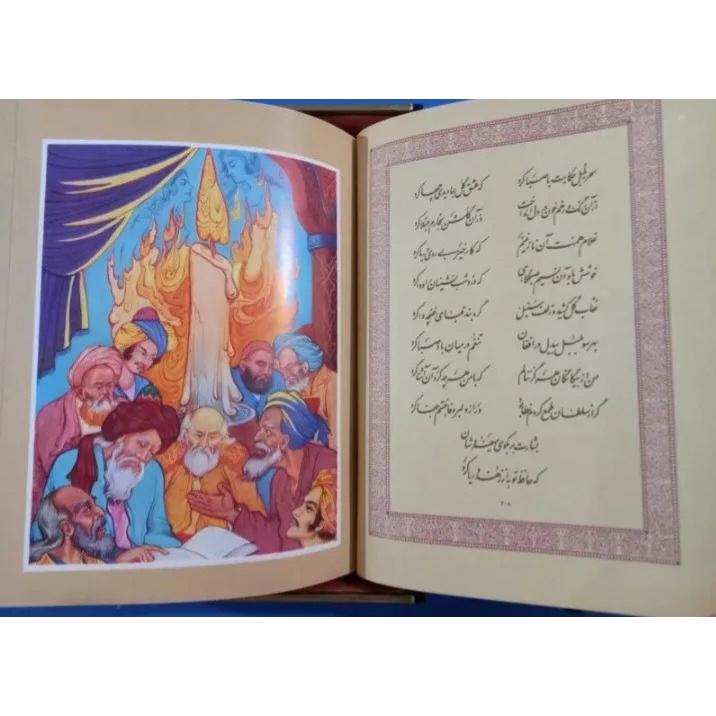 سحر بلبل حکایت با صبا کرد که عشق گل بما دیدی چها کرد
وزان رنگ رخم خون در دل انداخت وزان گلشن بخارم مبتلا کرد
غلام همت آن نازنینم که کار خیر بی روی و ریا کرد
خوشش باد آن نسیم صبحگاهی که درد شب نشینان را دوا کرد
نقاب گل کشید و زلف سنبل گره بند قبای غنچه وا کرد
بهر سو بلبل بیدل در افغان تنعم در میان باد صبا کرد
من از بیگانگان هرگز ننالم که با من هر چه کرد آن آشنا کرد
گر از سلطان طمع کردم خطا بود ور از دلبر وفا جستم جفا کرد
بشارت بر بکوی میفروشان
که حافظ توبه از زهد و ریا کرد
۲۰۸